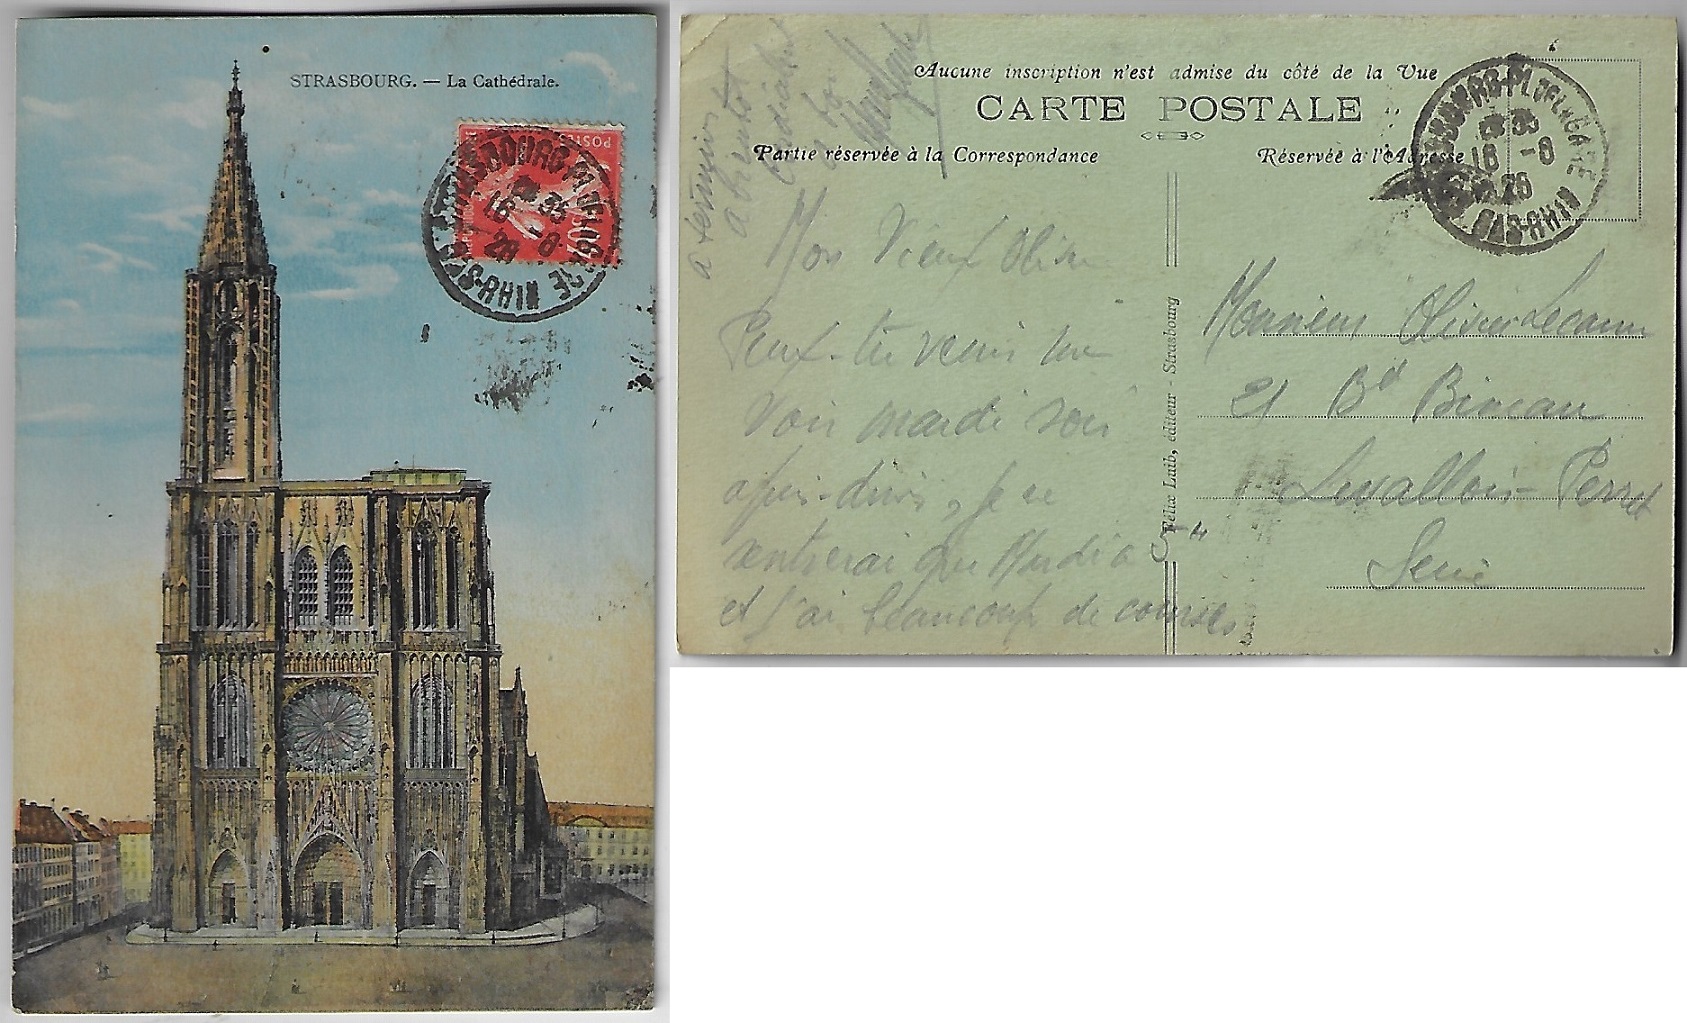 STRASBOURG. — La Cathédrale.
POSTES
10
18 35
16 -8
26
BAS-RHIN
Aucune inscription n'est admise du côté de la Vue
CARTE POSTALE
Partie réservée à la Correspondance
Réservée à l'Adresse
18 35
16 -8
26
BAS-RHIN
a terminer
a bientot
Mon Vieux Olivier
Peux-tu venir me
voir mardi soir
après-diner, je ne
rentrerai que Mardi a
et j'ai beaucoup de courses
Félix Luib, éditeur - Strasbourg
Monsieur Olivier Lecann
21 Bd Bineau
Levallois-Perret
Seine